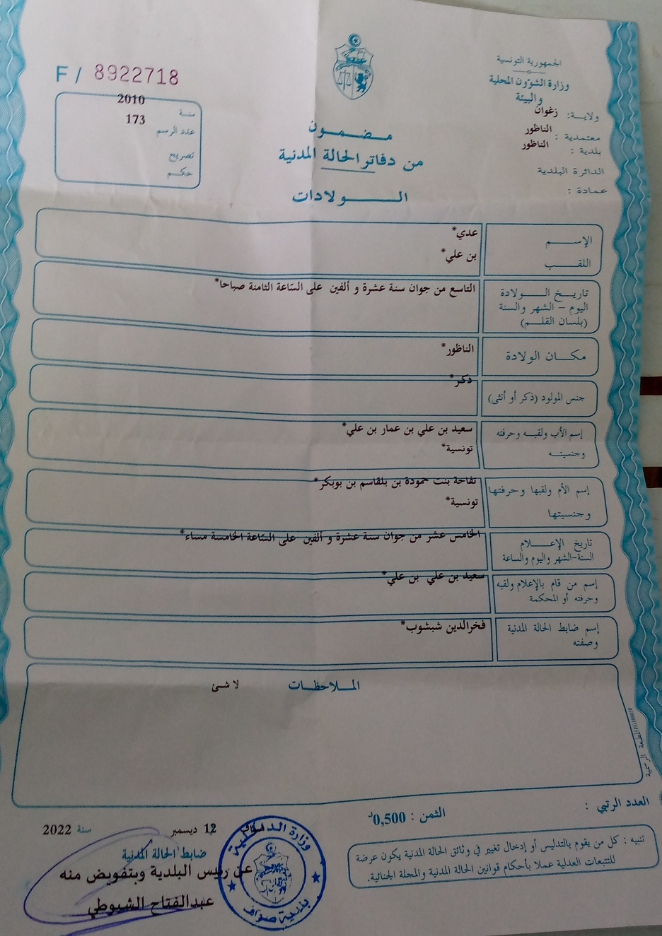 الجمهورية التونسية
وزارة الشؤون المحلية
والبيئة
ولاية: زغوان
معتمدية : الناظور
بلدية : الناظور
الدائرة البلدية
عمادة :
F / 8922718
سنة 2010
عدد الرسم 173
تصريح
حكم
مضمون
من دفاتر الحالة المدنية
الولادات
الإسم عدي*
اللقب بن علي*
تاريخ الولادة
اليوم - الشهر والسنة
(بلسان القلم)
التاسع من جوان سنة عشرة و ألفين على الساعة الثامنة صباحا*
مكان الولادة الناظور*
جنس المولود (ذكر أو أنثى) ذكر*
إسم الأب ولقبه وحرفته سعيد بن علي بن عمار بن علي*
وجنسيته تونسية*
إسم الأم ولقبها وحرفتها تفاحة بنت حمودة بن بلقاسم بن بوبكر*
وجنسيتها تونسية*
تاريخ الإعلام الخامس عشر من جوان سنة عشرة و ألفين على الساعة الخامسة مساء*
السنة-الشهر واليوم والساعة
إسم من قام بالإعلام ولقبه سعيد بن علي بن علي*
وحرفته أو المحكمة
إسم ضابط الحالة المدنية فخرالدين شبشوب*
وصفته
الملاحظات لا شئ
العدد الرتبي :
الثمن : 0,500د
تنبيه : كل من يقوم بالتدليس أو إدخال تغيير في وثائق الحالة المدنية يكون عرضة
للتتبعات العدلية عملا بأحكام قوانين الحالة المدنية والمجلة الجنائية.
12 ديسمبر سنة 2022
ضابط الحالة المدنية
عن رئيس البلدية وبتفويض منه
عبدالفتاح الشيوطي
بلدية صواف